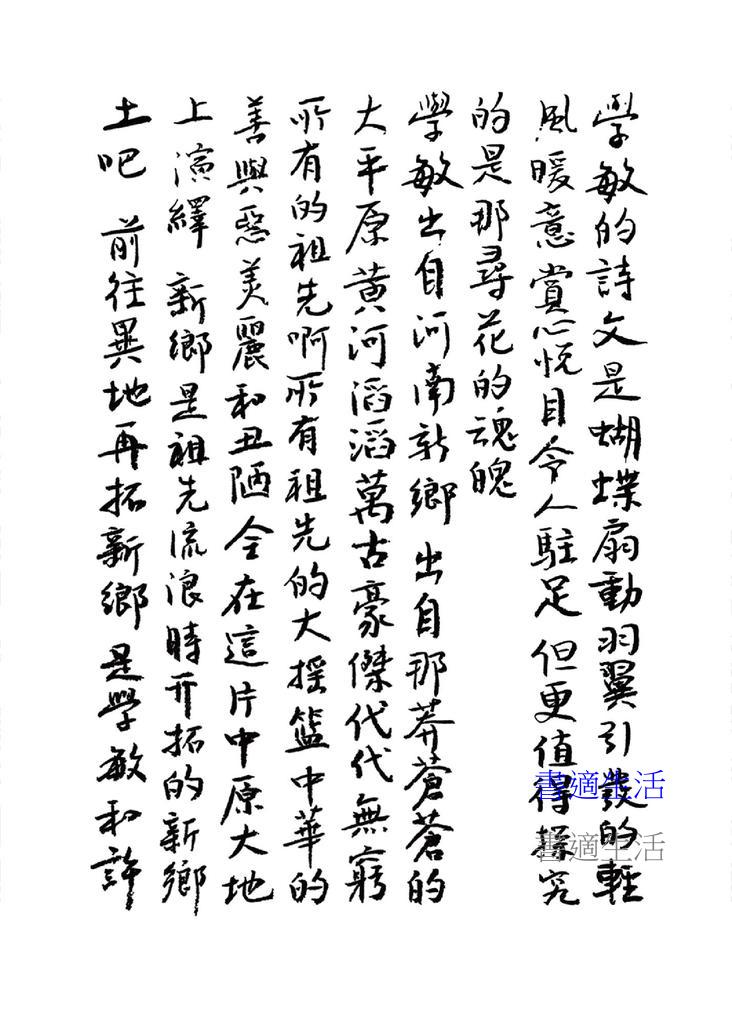 學敏的詩文是蝴蝶扇動羽翼引發的輕
風暖意賞心悅目令人駐足 但更值得探究
的是那尋花的魂魄
學敏出自河南新鄉 出自那莽蒼蒼的
大平原黃河滔滔萬古豪傑代代無窮
所有的祖先啊所有祖先的大搖籃中華的
善與惡美麗和丑陋全在這片中原大地
上演繹 新鄉是祖先流浪時開拓的新鄉
土吧 前往異地再拓新鄉 是學敏和許
書適生活
書適生活